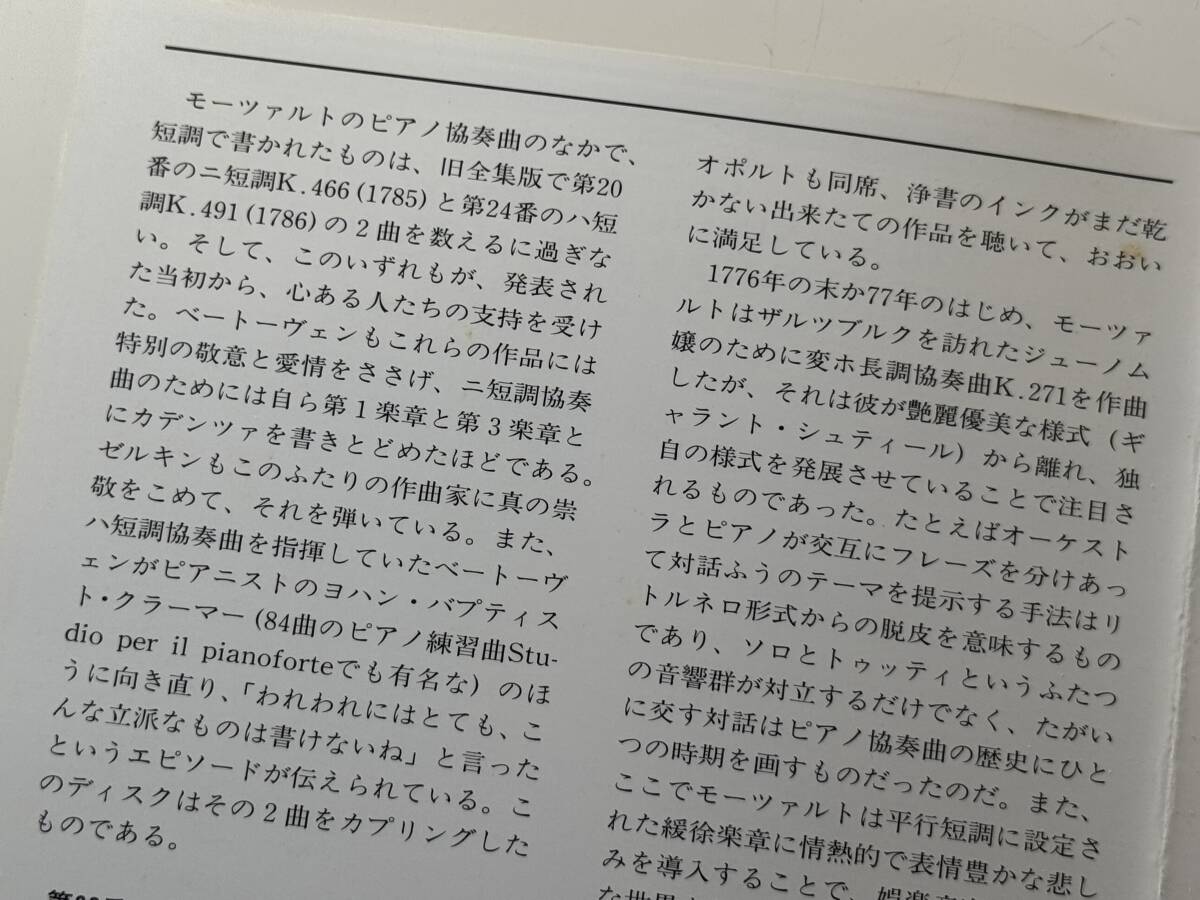 モーツァルトのピアノ協奏曲のなかで、
短調で書かれたものは、旧全集版で第20
番のニ短調K.466(1785)と第24番のハ短
調K.491(1786)の2曲を数えるに過ぎな
い。そして、このいずれもが、発表され
た当初から、心ある人たちの支持を受け
た。ベートーヴェンもこれらの作品には
特別の敬意と愛情をささげ、ニ短調協奏
曲のためには自ら第1楽章と第3楽章と
にカデンツァを書きとどめたほどである。
ゼルキンもこのふたりの作曲家に真の崇
敬をこめて、それを弾いている。また、
ハ短調協奏曲を指揮していたベートーヴ
ェンがピアニストのヨハン・バプティス
ト・クラーマー(84曲のピアノ練習曲Stu-
dio per il pianoforteでも有名な)のほ
うに向き直り、「われわれにはとても、こ
んな立派なものは書けないね」と言った
というエピソードが伝えられている。こ
のディスクはその2曲をカプリングした
ものである。
オポルトも同席、浄書のインクがまだ乾
かない出来たての作品を聴いて、おおい
に満足している。
1776年の末か77年のはじめ、モーツァ
ルトはザルツブルクを訪れたジューノム
嬢のために変ホ長調協奏曲K.271を作曲
したが、それは彼が艶麗優美な様式(ギ
ャラント・シュティール)から離れ、独
自の様式を発展させていることで注目さ
れるものであった。たとえばオーケスト
ラとピアノが交互にフレーズを分けあっ
て対話ふうのテーマを提示する手法はリ
トルネロ形式からの脱皮を意味するもの
であり、ソロとトゥッティというふたつ
の音響群が対立するだけでなく、たがい
に交す対話はピアノ協奏曲の歴史にひと
つの時期を画すものだったのだ。また、
ここでモーツァルトは平行短調に設定さ
れた緩徐楽章に情熱的で表情豊かな悲し
みを導入することで、娯楽音